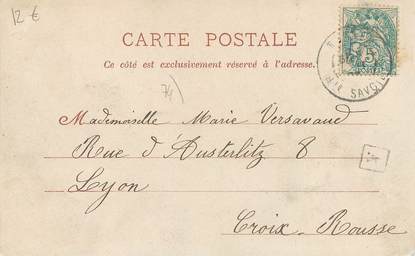 12 €
CARTE POSTALE
Ce côté est exclusivement réservé à l'adresse.
74)
Mademoiselle Marie Versavaud
Rue d'Austerlitz 8
Lyon
Croix-Rousse
5
Hte SAVOIE
A